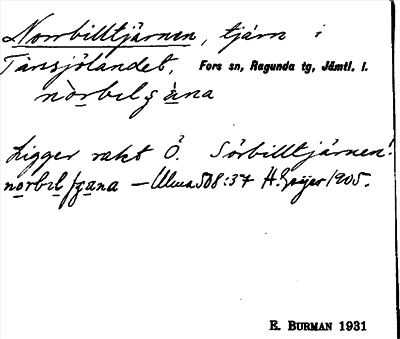 Norrbilltjärnen, tjärn i
Tansjölandet, Fors sn, Ragunda tg, Jämtl. l.
Ligger rakt Ö. Sörbilltjärnen!
— Ulma 508:37 H. Geijer 1905.
E. BURMAN 1931